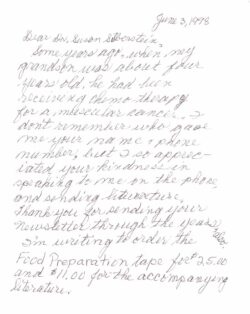 June 3, 1998
Dear Dr. Susan Silberstein:
Some years ago, when my
grandson was about four
years old, he had been
receiving chemo therapy
for a muscular cancer. I
don't remember who gave
me your name & phone
number, but I so apprec-
iated your kindness in
speaking to me on the phone,
and sending literature.
Thank you for sending your
newsletter through the years,
I'm writing to order the
Food Preparation tape for $25.00
and $11.00 for the accompanying
literature.